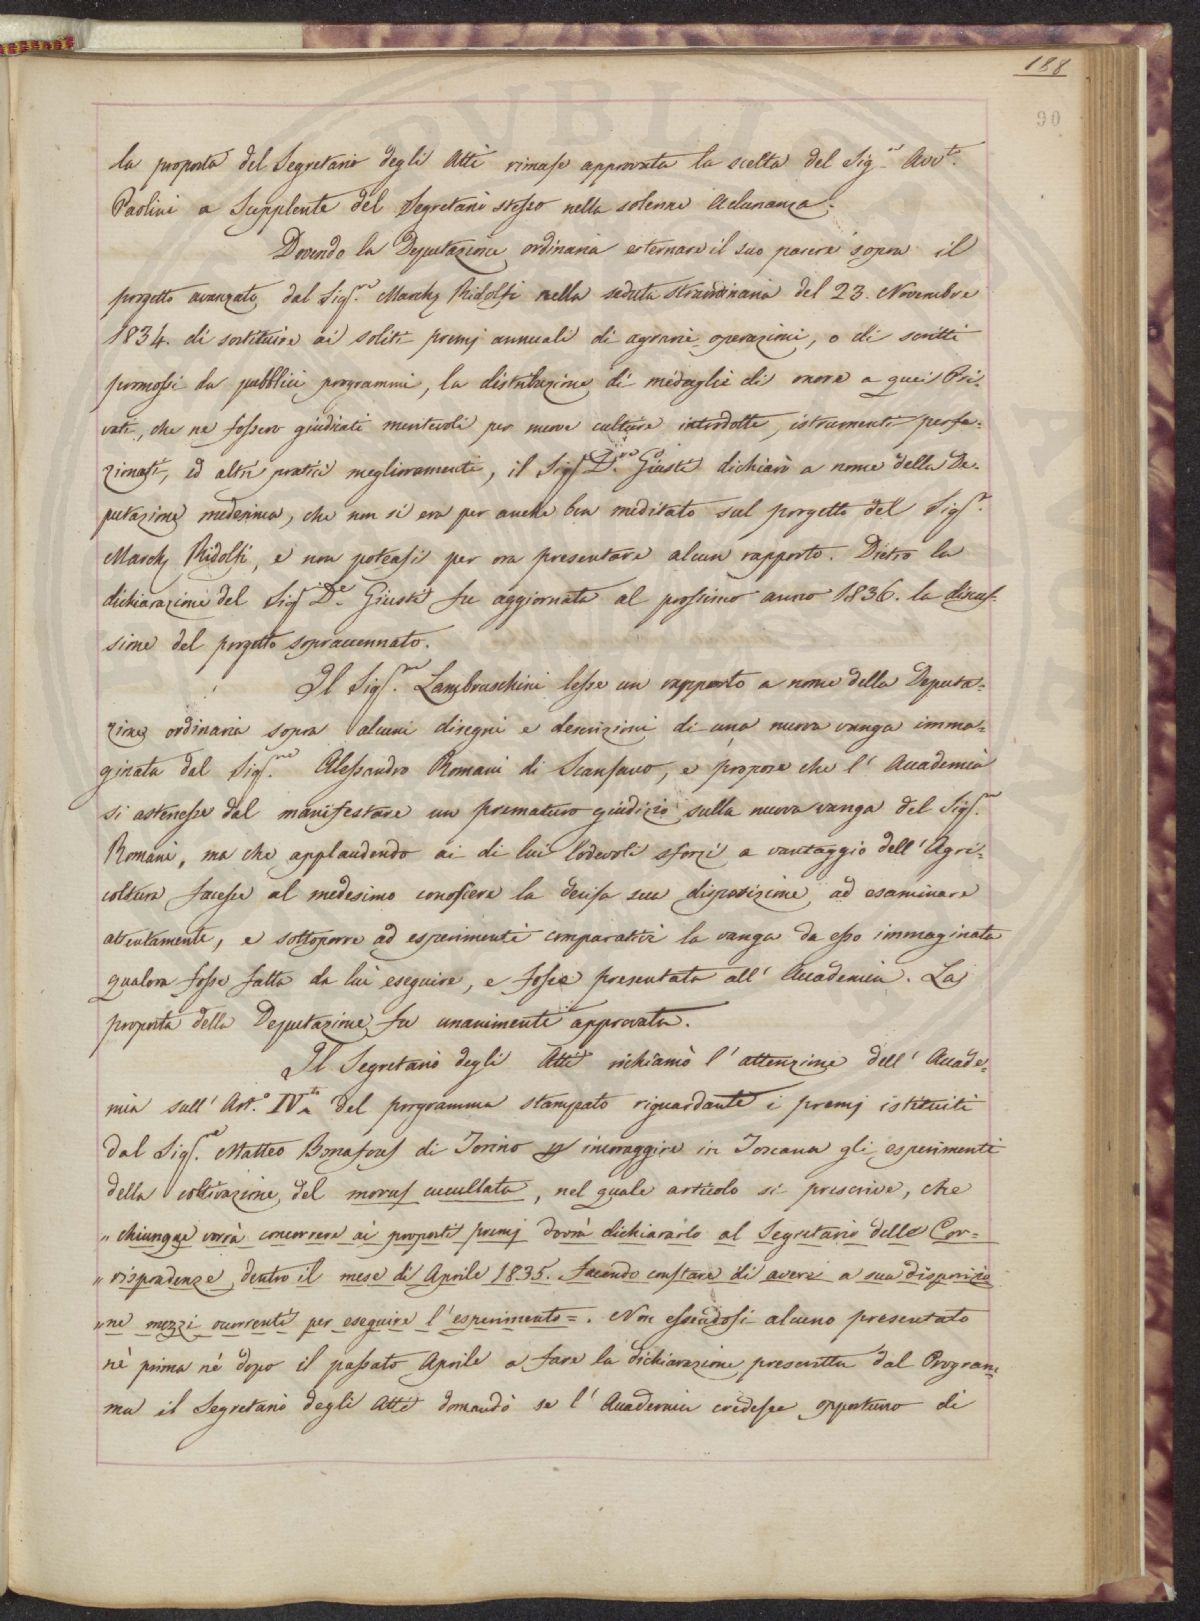 188
90
la proposta del Segretario degli Atti rimase approvata la scelta del Sig.re Avv.to
Paolini a Supplente del Segretario stesso nella solenne Adunanza.
Dovendo la Deputazione ordinaria esternare il suo parere sopra il
progetto avanzato dal Sig.re March. Ridolfi nella seduta straordinaria del 23. Novembre
1834. di sostituire ai soliti premj annuali di agrarie operazioni, o di scritti
promossi da pubblici programmi, la distribuzione di medaglie di onore a quei Pri-
vati, che ne fossero giudicati meritevoli per nuove culture introdotte, istrumenti perfe-
zionati, ed altri pratici miglioramenti, il Sig.re D.re Giusti dichiarò a nome della De-
putazione medesima, che non si era per anche ben meditato sul progetto del Sig.r
March. Ridolfi, e non poteasi per ora presentare alcun rapporto. Dietro la
dichiarazione del Sig. D.e Giusti fu aggiornata al prossimo anno 1836. la discus-
sione del progetto sopraccennato.
Il Sig.re Lambruschini lesse un rapporto a nome della Deputa-
zione ordinaria sopra alcuni disegni e descrizioni di una nuova vanga imma-
ginata dal Sig.re Alessandro Romani di Scansano, e propose che l' Accademia
si astenesse dal manifestare un prematuro giudizio sulla nuova vanga del Sig.re
Romani, ma che applaudendo ai di lui lodevoli sforzi a vantaggio dell' Agri-
coltura facesse al medesimo conoscere la decisa sua disposizione ad esaminare
attentamente, e sottoporre ad esperimenti comparativi la vanga da esso immaginata
qualora fosse fatta da lui eseguire, e fosse presentata all' Accademia. La
proposta della Deputazione fu unanimente approvata.
Il Segretario degli Atti richiamò l' attenzione dell' Accade-
mia sull' Art.o IV.to del programma stampato riguardante i premj istituiti
dal Sig.re Matteo Bonafous di Torino p incoraggire in Toscana gli esperimenti
della coltivazione del morus cucullata, nel quale articolo si prescrive, che
" chiunque vorrà concorrere ai proposti premj dovrà dichiararlo al Segretario delle Cor-
" rispondenze dentro il mese di Aprile 1835. facendo constare di avere a sua disposizio
" ne mezzi occorrenti per eseguire l' esperimento =. Non essendosi alcuno presentato
nè prima nè dopo il passato Aprile a fare la dichiarazione prescritta dal Program-
ma il Segretario degli Atti domandò se l' Accademia credesse opportuno di